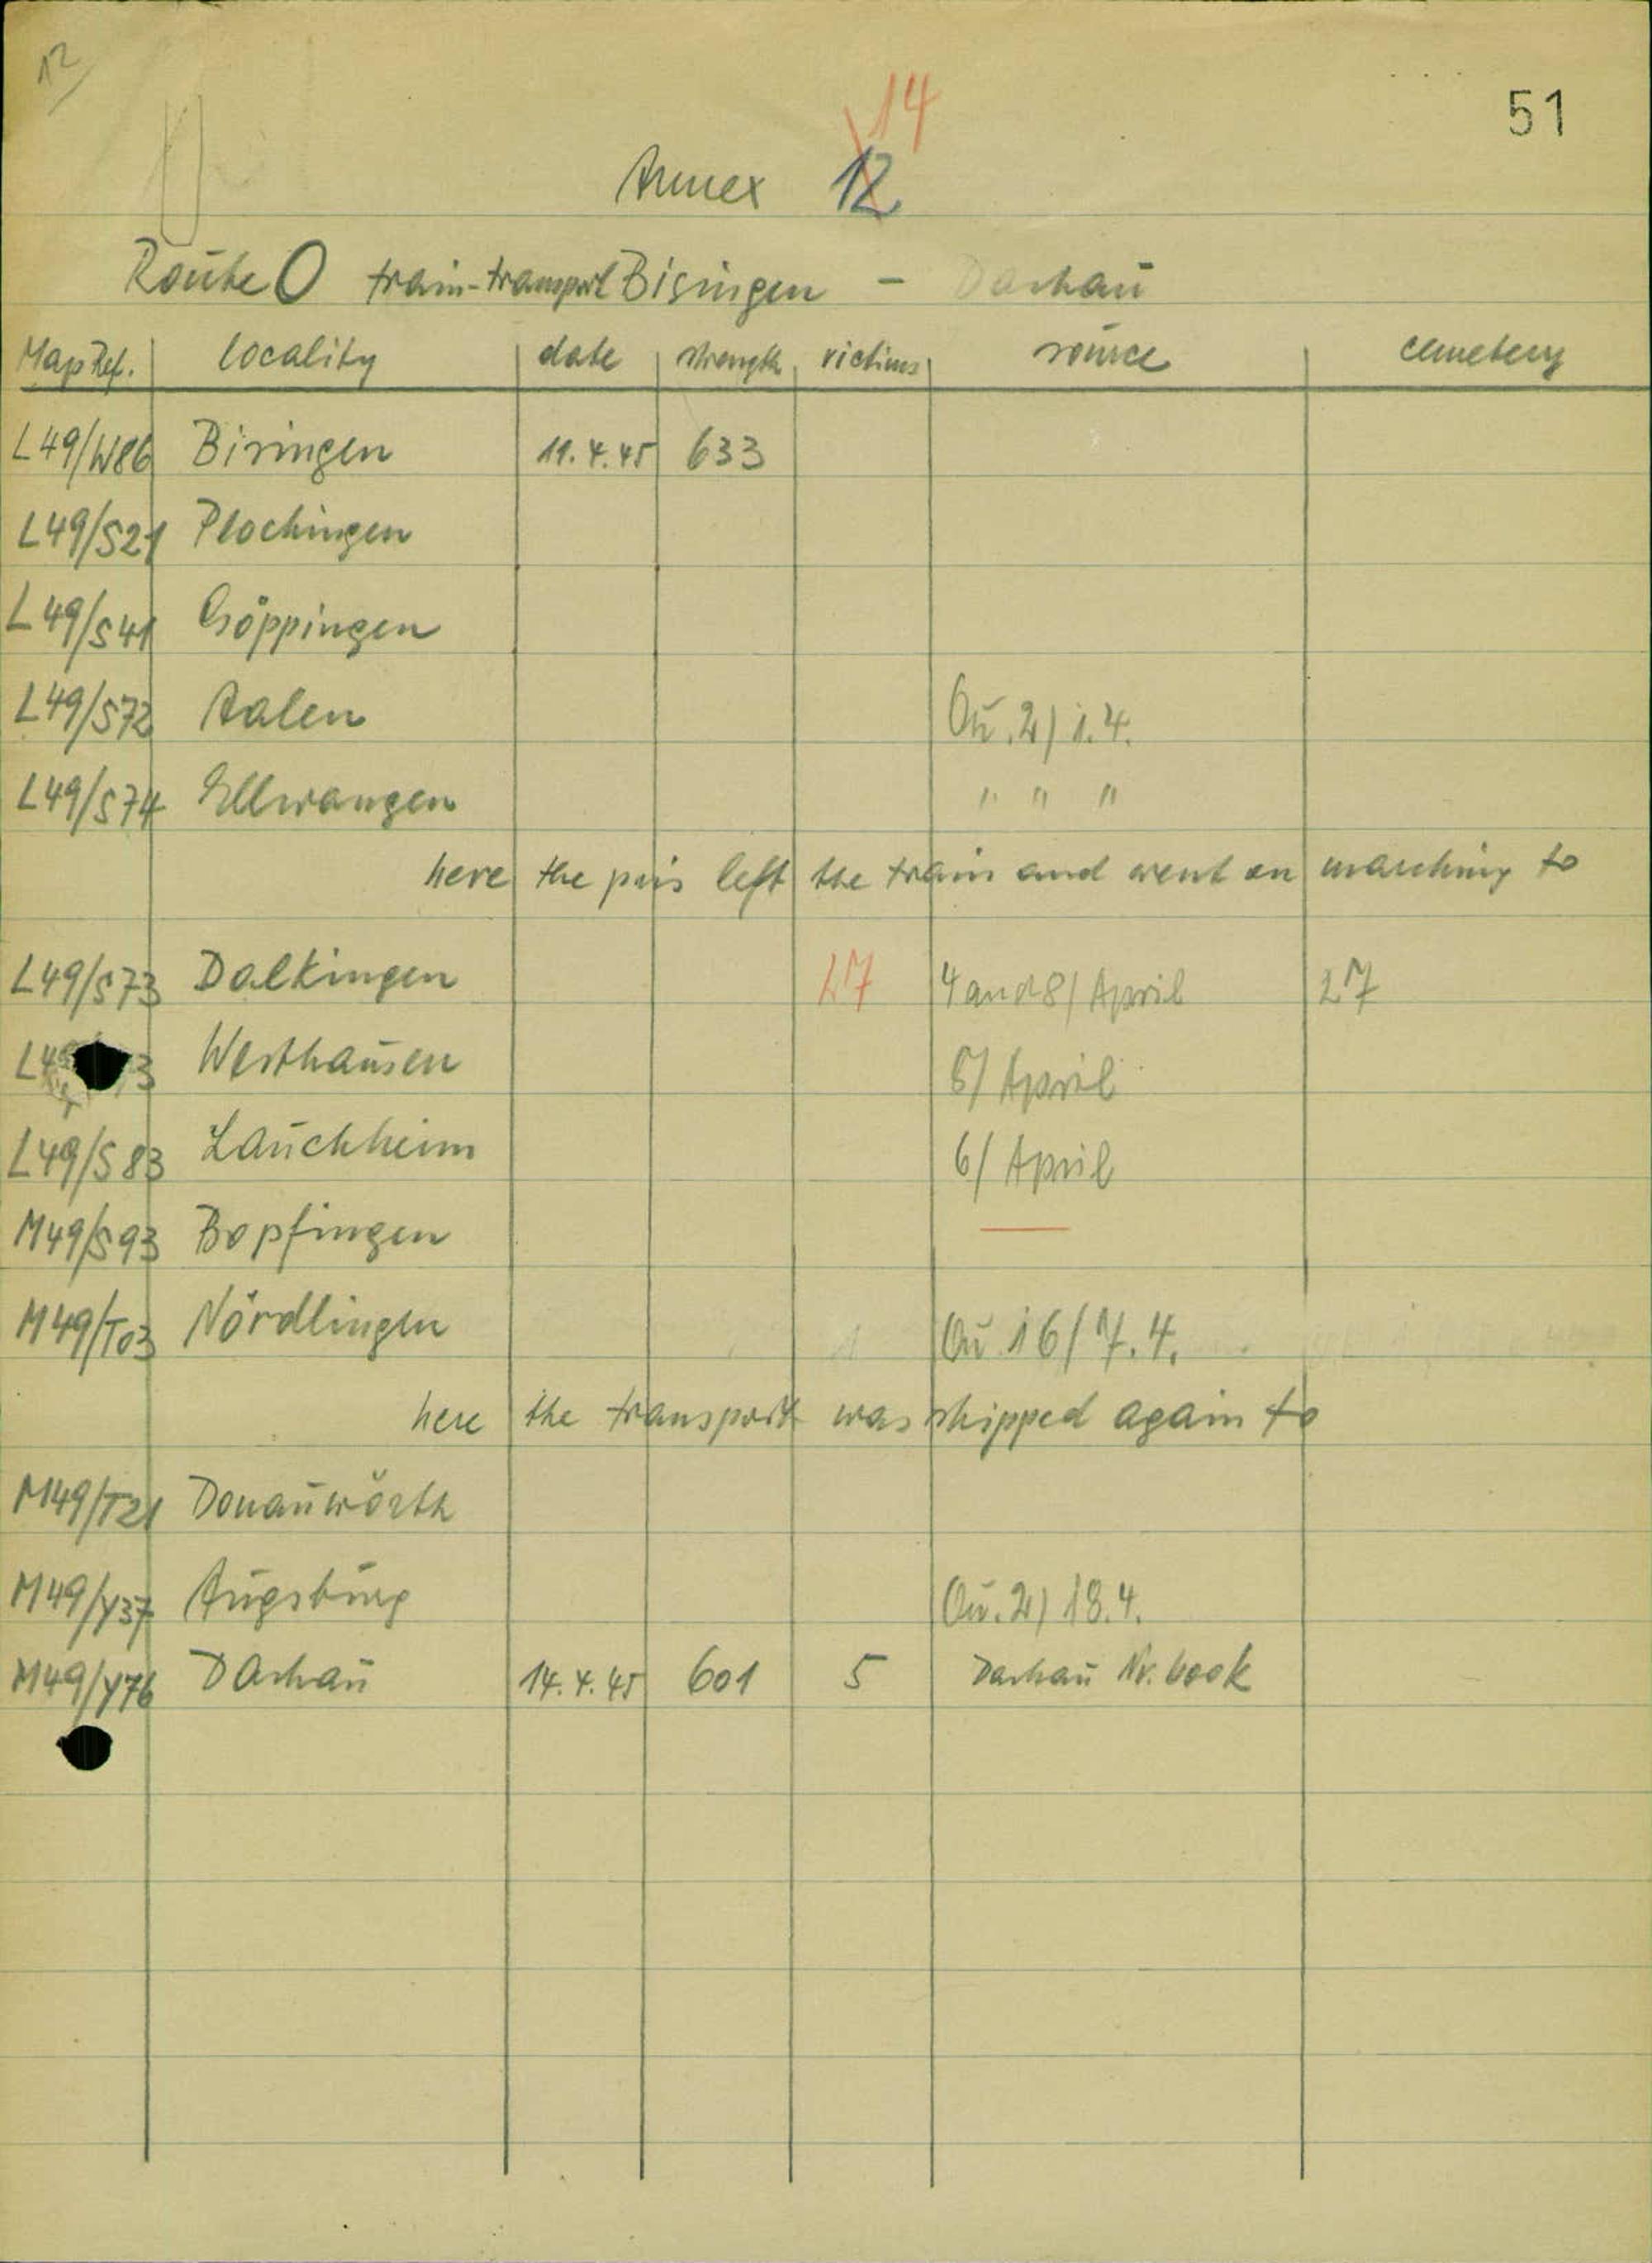 12
14
51
Annex 12
Route O train-transport Bisingen - Dachau
Map Ref. locality date strength victims source cemetery
L49/W86 Bisingen 11.4.45 633
L49/S21 Plochingen
L49/S41 Göppingen
L49/S72 Aalen Qu. 2) 1.4.
L49/S74 Ellwangen " " "
here the pris left the train and went on marching to
L49/S73 Dalkingen 27 4 and 8/ April 27
Westhausen April
L49/S83 Lauchheim 6/ April
M49/S93 Bopfingen
M49/T03 Nördlingen Qu 16/ 7.4.
here the transport was shipped again to
M49/T21 Donauwörth
M49/Y37 Augsburg Qu. 2) 18.4.
M49/Y76 Dachau 14.4.45 601 5 Dachau Nr. book